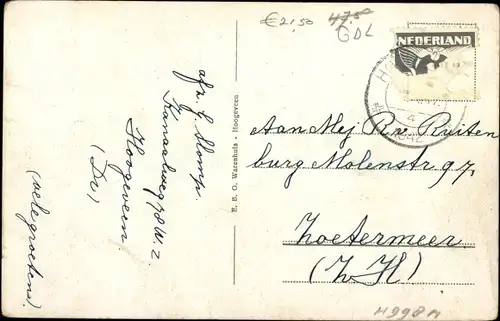 €21,50
47.50
GDL
NEDERLAND
1942
afz. J. Stomp.
Kanaalweg
W. 2.
Hoogeveen
(Dr.)
(vele groeten)
E. B. O. Warenhuis - Hoogeveen
Aan Mej R. v. Ruiten
burg Molenstr. 97,
Zoetermeer
(Z. H)
M998M